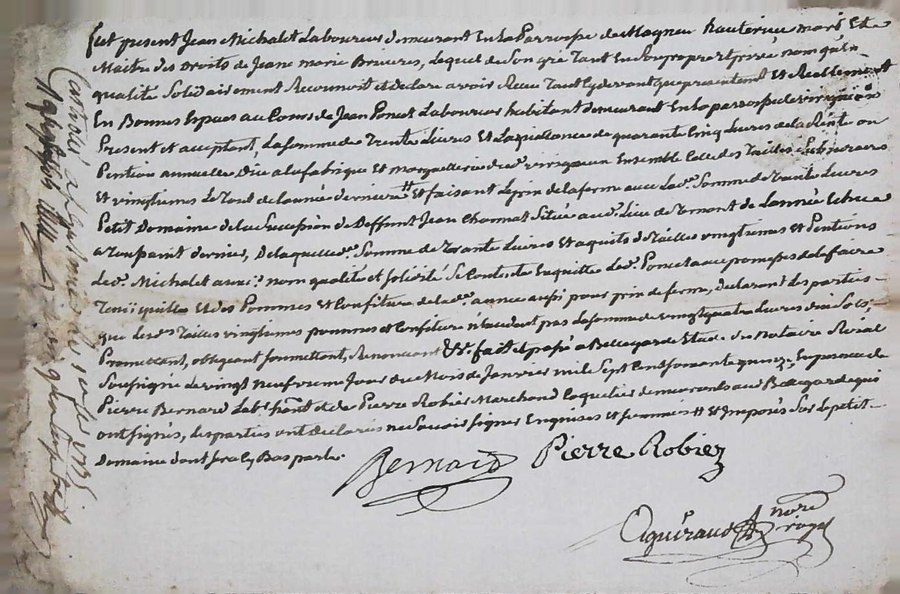 fut present Jean Michalet Laboureur demeurant En la Parroisse de Magneu hauterieu mary Et
Maitre des Droits de Jeane marie Bruieres, lequel de Son gré Tant En Son propre et privé nom qu'en
qualité Solidairement Reconnoit et Declare avoir Receu Tant Cy devant que presentement Et Reallement
En Bonnes Especes au Cours de Jean Poncet Laboureur habitant demeurant En la parroisse de
Present et acceptant, La somme de Trente Livres Et La quittance de quarante Cinq Livres de la Rente ou
Pention annuelle Due a la fabrique Et marguellerie de Ensemble Celle des Tailles
Et vingtiemes Le Tout de l'année derniere # Et faisant Le prix de la ferme avec lad. Somme de Trante Livres
Petit Domaine de la Succession de Deffunt Jean Chonnat Située aud. Lieu de de L'année Echue
a Toussaint dernier, De laquelle d. Somme de Trante Livres Et aquits de Tailles vingtiemes Et Pentions
Led. Michalet aud. nom qualité et Solidité Se Contente En quitte led. Poncet avec promesse de le faire
Tenir quitte Et des Pommes Et Confiture de lad. année aussi pour prix de ferme, declarant les parties
que les d. Tailles vingtiemes pommes et Confiture n'Excedent pas la somme de vingt quatre Livres dix Sols,
Promettant, obligeant soumettant, Renonceant &c. fait et passé a Bellegarde Etude du Notaire Roial
Soussigné Le vingt neufvieme Jour du Mois de Janvier mil Sept Cent soixante quinze En presence de
Pierre Bernard Lab. hant. et de Pierre Robier Marchand Coquetier demeurants aud. Bellegarde qui
ont signés, les parties ont declarés ne Scavoir signer Enquises et sommées # Et Imposés Sur le petit
Domaine dont Sera Cy Bas parlé.
Bernard Pierre Robiez
nore
royal